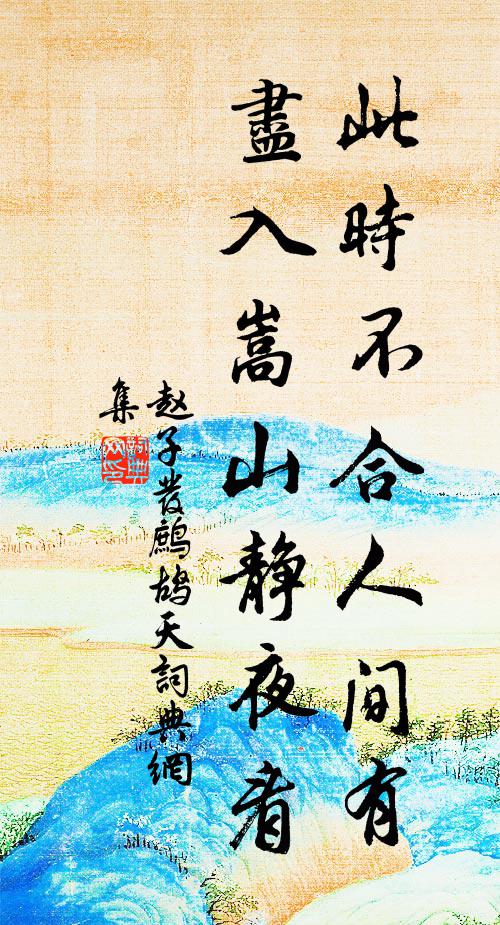 此時不合人間有
盡入嵩山静夜看
赵子發鷓鴣天詞典網
集